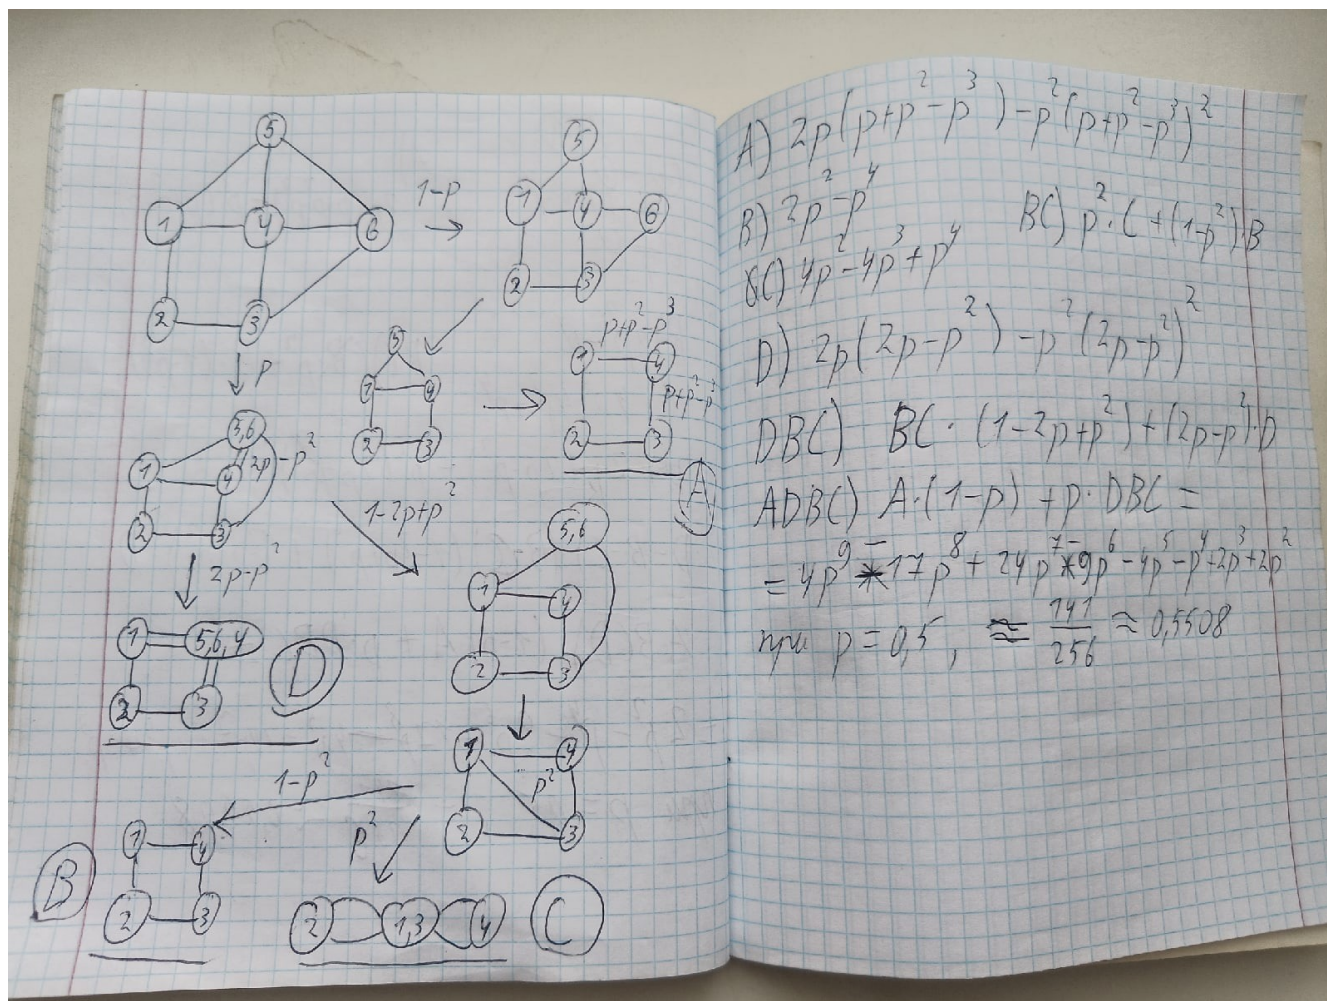 5
1 4 6
2 3
1-p
5
1 4 6
2 3
p
5
1 4
2 3
p+p²-p³
1 4
p+p²-p³
2 3
A
5,6
2p-p²
1 4
2 3
1-2p+p²
2p-p²
5,6
1 4
2 3
1 5,6,4
2 3
D
1 4
p²
2 3
1-p²
p²
1 4
2 3
B
2 1,3 4
C
A) 2p(p+p²-p³)-p²(p+p²-p³)²
B) 2p²-p⁴
BC) p²·C+(1-p²)·B
C) 4p²-4p³+p⁴
D) 2p(2p-p²)-p²(2p-p²)²
DBC) BC·(1-2p+p²)+(2p-p²)·D
ADBC) A·(1-p)+p·DBC=
=4p⁹-17p⁸+24p⁷-9p⁶-4p⁵-p⁴+2p³+2p²
при p=0,5, ≈ 141/256 ≈ 0,5508